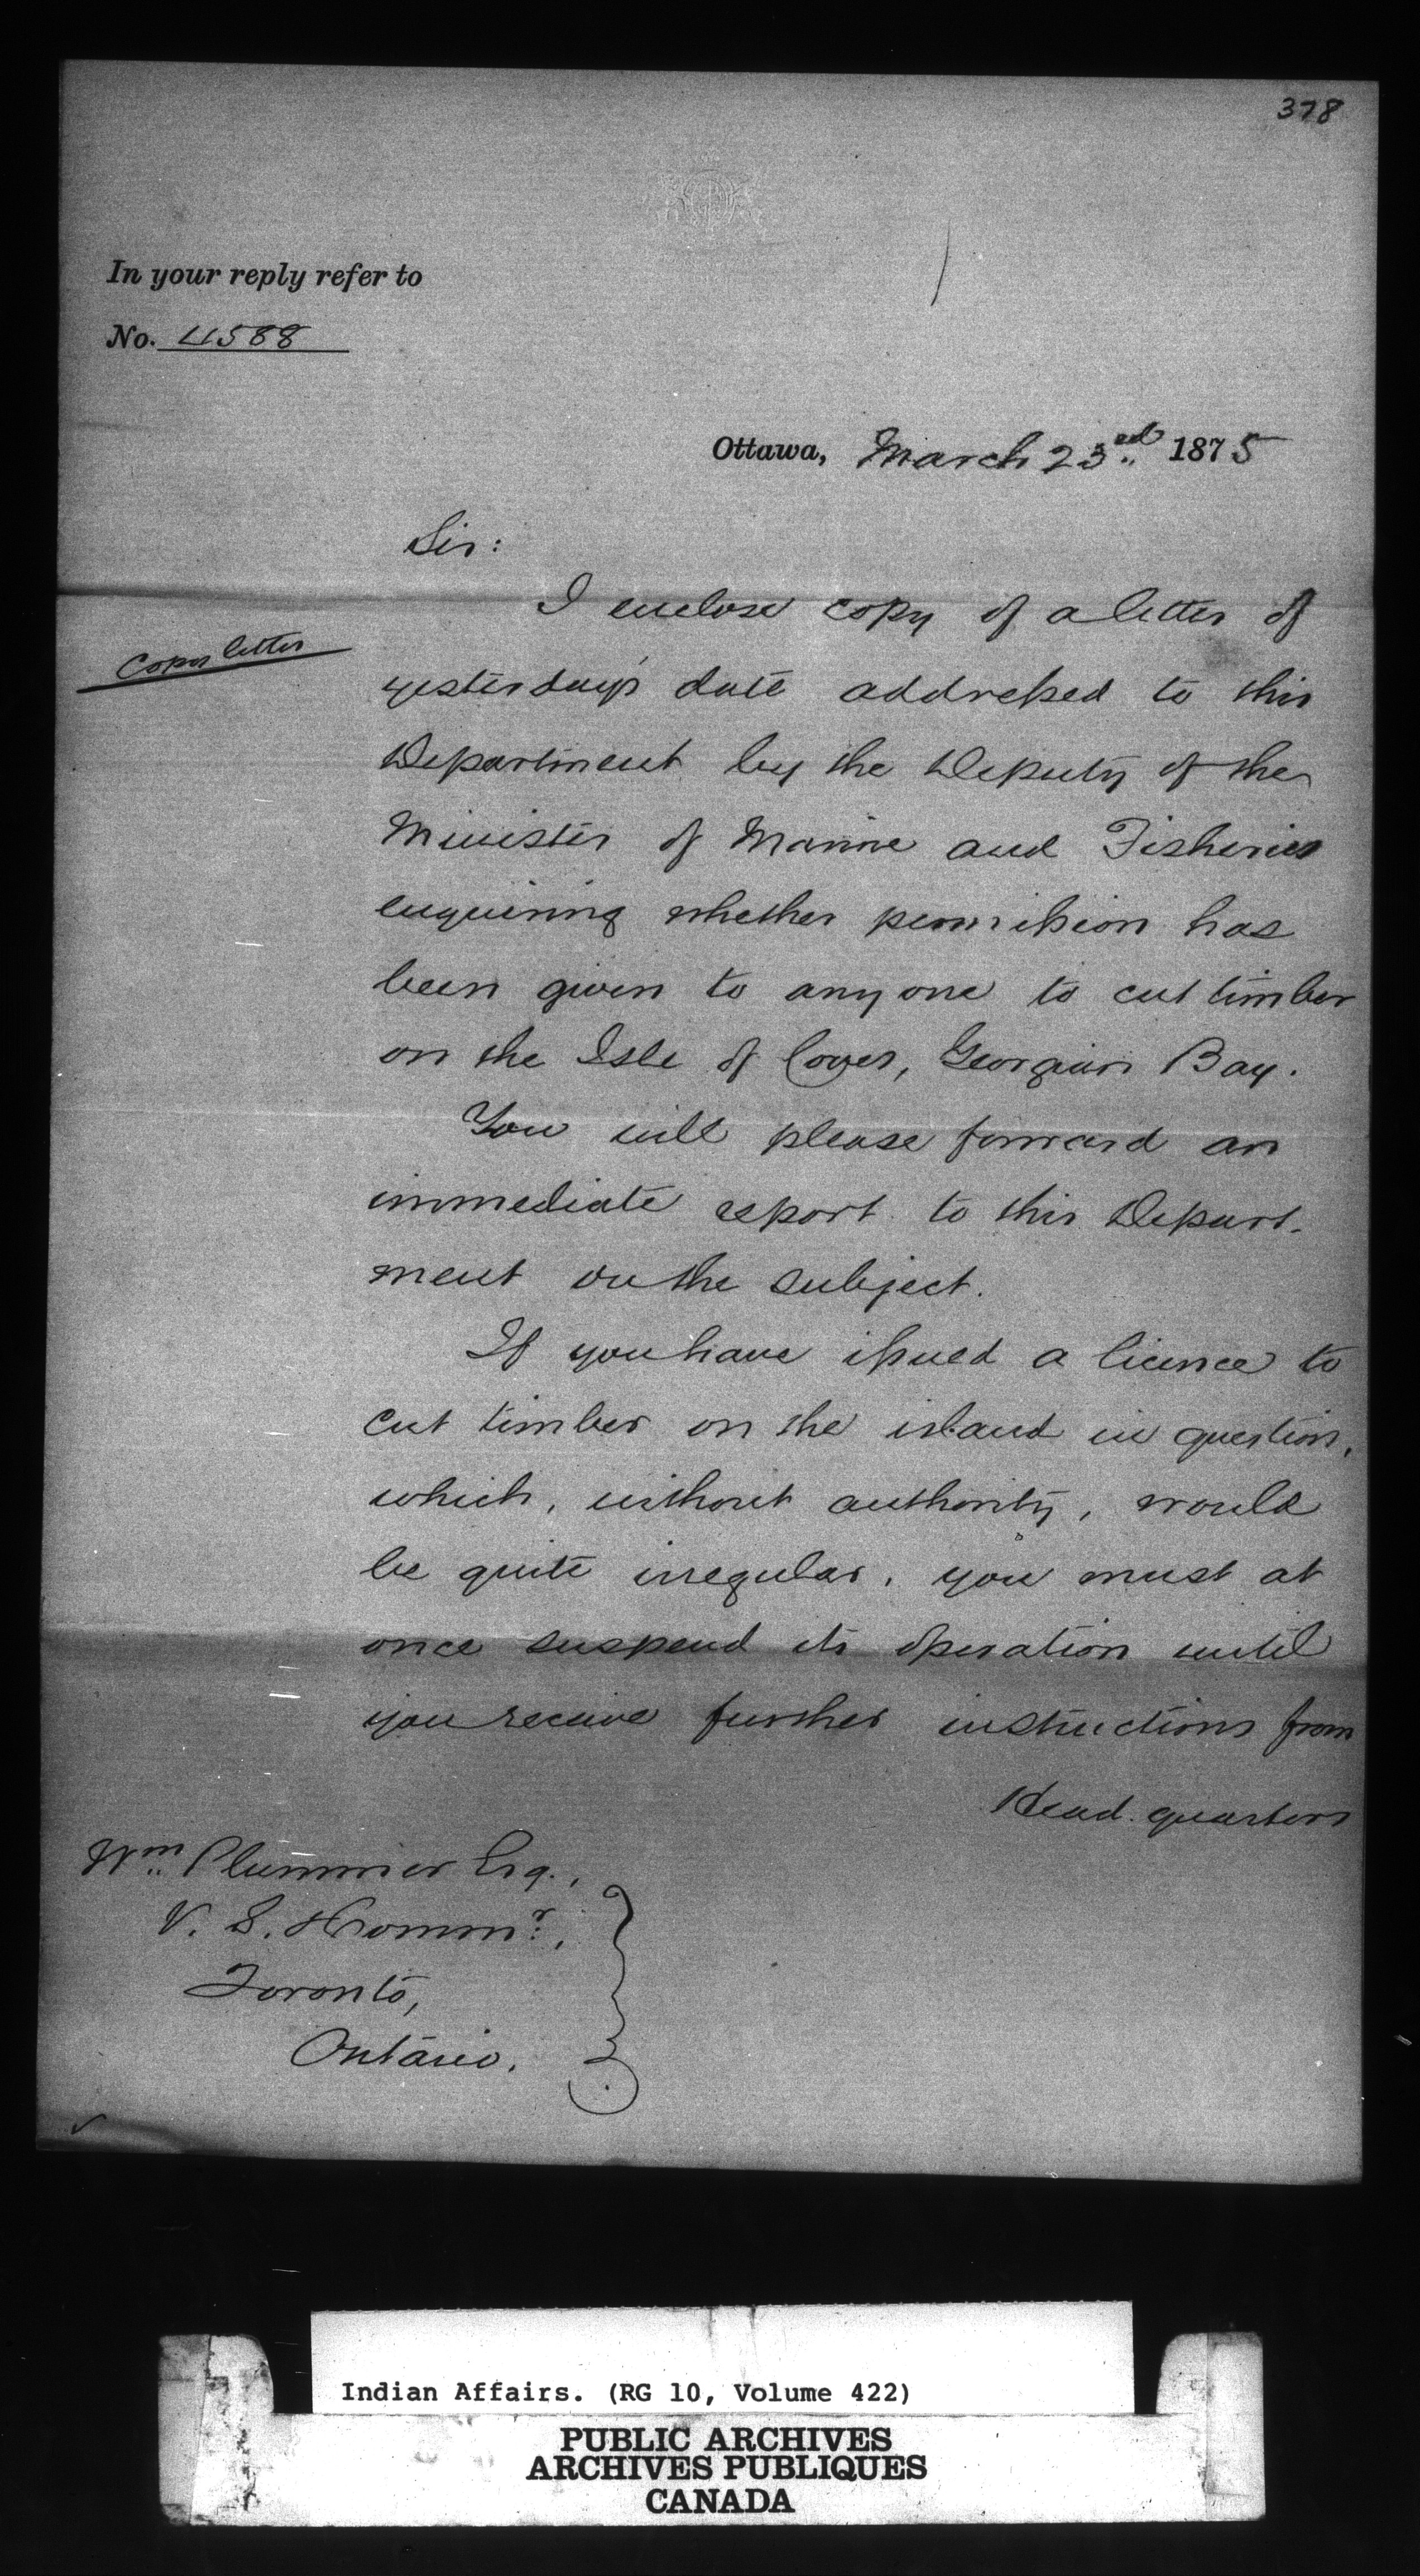 378
In your reply refer to
No. 4588
Ottawa, March 23rd 1875
Sir:
I enclose copy of a letter of
Copy letter
yesterday's date addressed to this
Department by the Deputy of the
Minister of Marine and Fisheries
enquiring whether permission has
been given to any one to cut timber
on the Isle of Coves, Georgian Bay.
You will please forward an
immediate report to this Depart-
ment on the subject.
If you have issued a licence to
cut timber on the island in question,
which, without authority, would
be quite irregular, you must at
once suspend its operation until
you receive further instructions from
Head quarters
Wm Plummer Esq.,
V. S. Commr.,
Toronto,
Ontario.
Indian Affairs. (RG 10, Volume 422)
PUBLIC ARCHIVES
ARCHIVES PUBLIQUES
CANADA